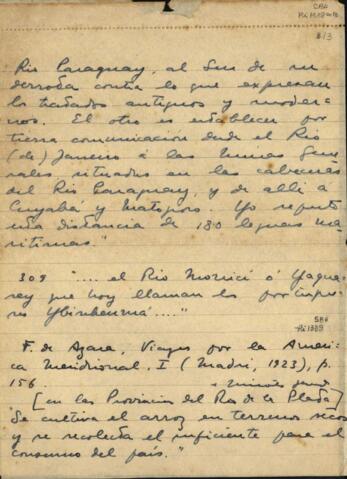 813
Río Paraguay, al Sur de su
derrota contra lo que expresan
los tratados antiguos y moder-
nos. El otro es establecer por
tierra comunicación desde el Río
(de) Janeiro á las Minas Gene-
rales, situadas en las cabeceras
del Río Paraguay, y de allí a
Cuyabá y Matogroso. Yo reputo
una distancia de 180 leguas ma-
rítimas"
309 ".... el Río Monicí ó Yagua-
rey que hoy llaman los por
Ybinheimá...."
F. de Azara, Viajes por la Améri-
ca Meridional, I (Madrid, 1923), p.
156.
[en las Provincias del Río de la Plata]
"Se cultiva el arroz en terrenos secos
y se recolecta el suficiente para el
consumo del país."